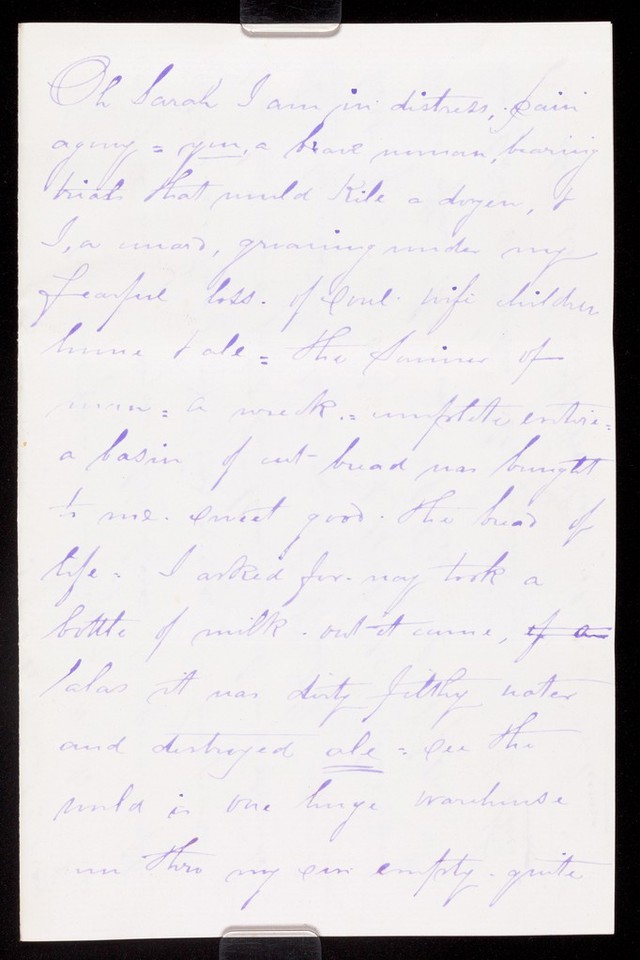 Oh Sarah I am in distress, pain
agony = you, a brave woman, bearing
trials that would kile a dozen, &
I, a coward, groaning under my
fearful loss. of soul. wife children
home & ale = the Saviour of
man = a wreck. = complete entire =
a basin of cut bread was bought
to me. sweet good. the bread of
life = I asked for. nay took a
bottle of milk. out it came, if an
alas it was dirty filthy water
and destroyed ale = see the
world is one huge warehouse
run thro my sin empty. quite